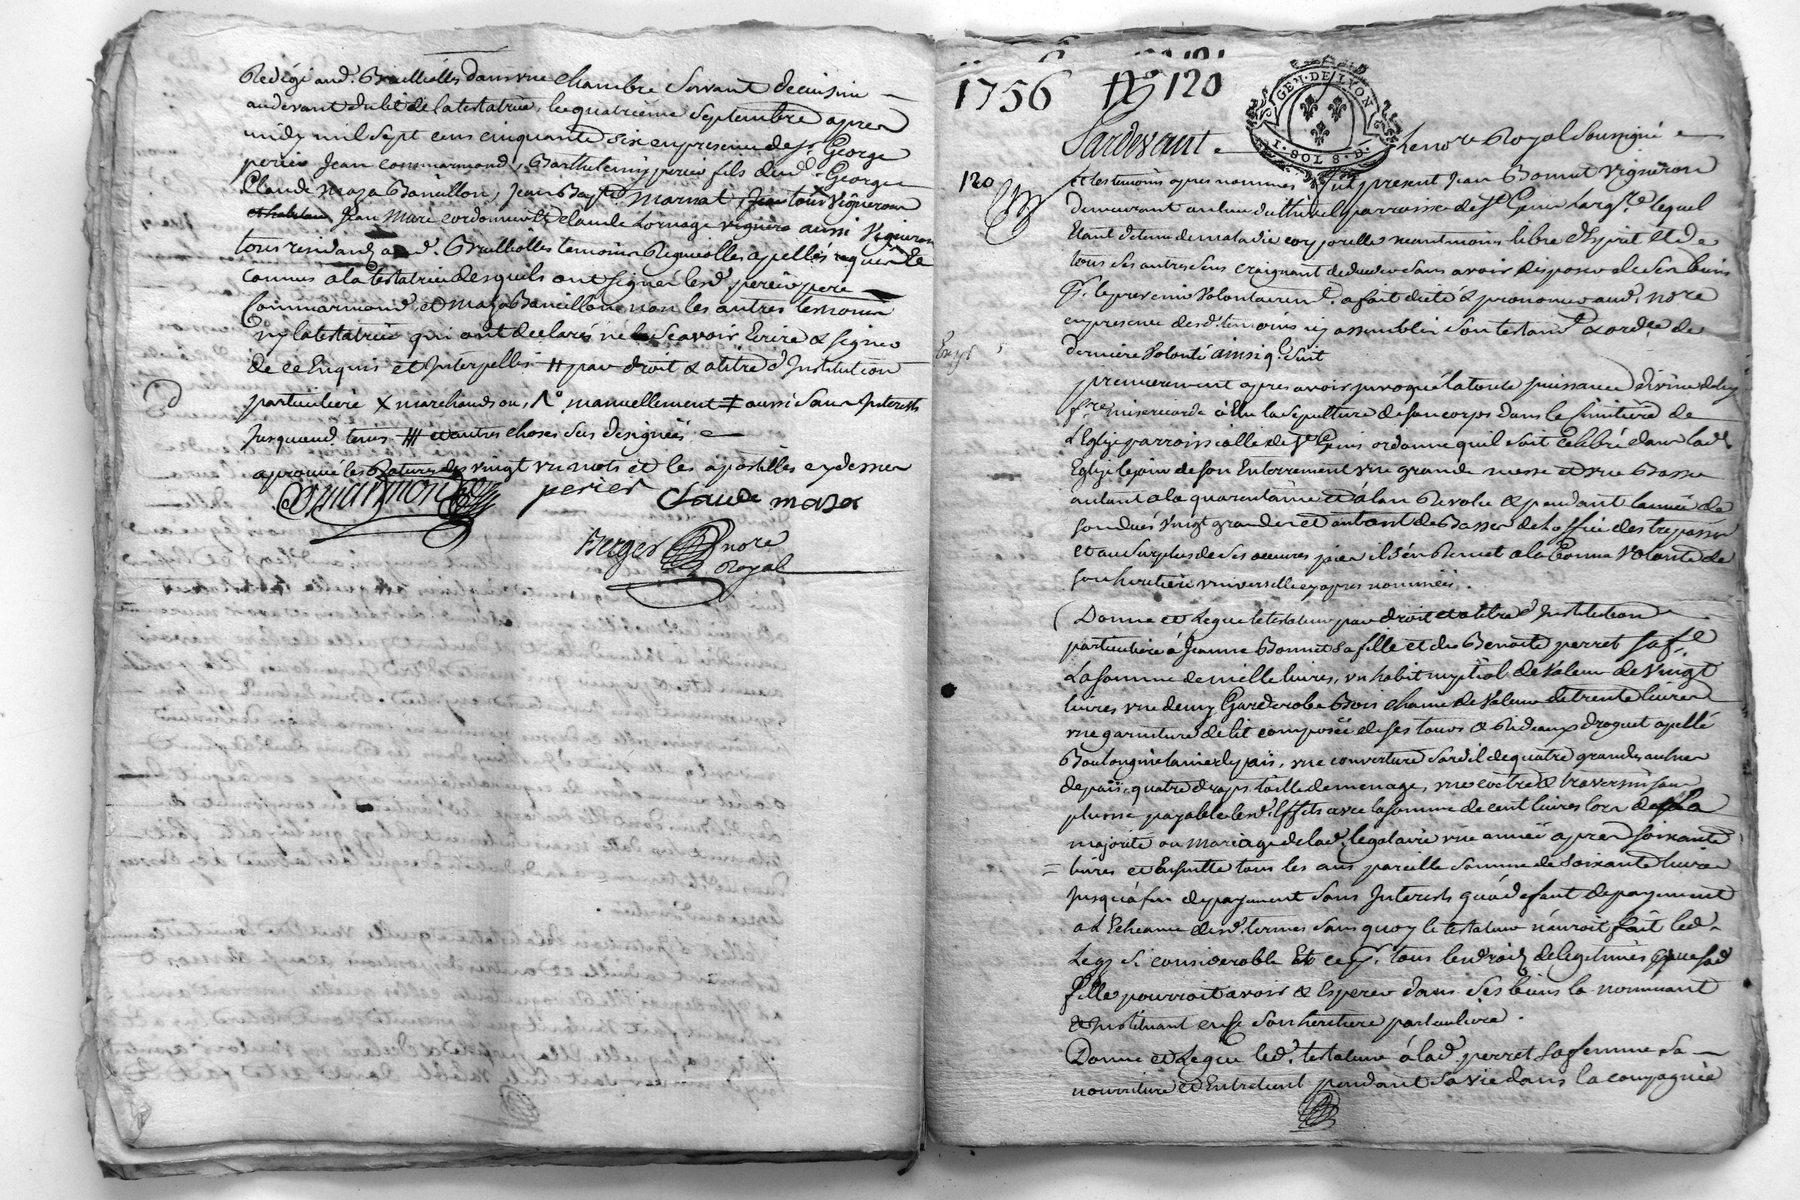 Redigé aud. Brulliolles dans une chambre servant de cuisine
au devant du lit de la testatrice, le quatrieme septembre apres
midy mil sept cens cinquante six en presence de sr. George
perier Jean commarmond, Barthelemy perier fils dud. George
Claude maza Bancillon, Jean Marnat, vigneron
Jean Marc cordonnier & claude Lornage aussi vigneron
tous residants aud. Brulliolles temoins requis & appellés
connus a la testatrice desquels ont signé lesd. perier pere
Commarmond, et maza Bancillon non les autres temoins
ny la testatrice qui ont declaré ne scavoir Ecrire & signer
de ce Enquis et Interpellés # par droit & a titre d'Institution
particuliere X marchands ou, manuellement ‡ aussi sans Interests
Jusquaud. tems et autres choses sus designées
aprouvé les Ratures des vingt un mots et les apostilles cy dessus
Commarmond perier Claude maza
Berger nore
Royal
1756 No. 120
GEN. DE LYON
1. SOL 8. D.
Pardevant le nore Royal soussigné
120
et les temoins apres nommés fut present Jean Bonnet vigneron
demeurant au lieu du Thinel parroisse de st. Genis Largre. lequel
Etant detenu de maladie corporelle neantmoins libre d'esprit et de
tous ses autres sens craignant de deceder sans avoir disposé de ses biens
pr. le prevenir volontairemt. a fait dicté & prononcé aud. nore
en presence desd. temoins icy assemblés son testamt. & ordce. de
derniere volonté ainsi q. suit
premierement apres avoir invoqué la toute puissance divine
misericorde a Elu la sepulture de son corps dans le cimitiere de
L'Eglise parroissialle de st. Genis ordonne qu'il soit celebré dans lad.
Eglise le jour de son Enterrement une grande messe et une Basse
autant a la quarantaine et a l'an Revolu & pendant l'année de
son deces vingt grandes et autant de Basses de L'office des trepassés
et au surplus de ses oeuvres pies il s'en Remet a la Bonne volonté de
son heritiere universelle cy apres nommée.
Donne et Legue le testateur par droit et a titre d'Institution
particuliere à Jeanne Bonnet sa fille et de Benoite perret sa fe.
La somme de mille livres, un habit nuptial de valeur de vingt
livres une demy Garderobe Bois chaine de valeur de trente livres
une garniture de lit composée de ses tours & Rideaux droguet appellé
Boulongine laine du païs, une couverture sardil de quatre grandes aulnes
de païs, quatre draps toille de menage, une coëtre & traversin sans
plume payables lesd. Effets avec la somme de cent livres lors de la
majorité ou mariage de lad. legataire une année apres soixante
livres et Ensuitte tous les ans pareille somme de soixante livres
Jusqu'a fin de payement sans Interests qu'a deffaut de payement
a L'Echeance desd. termes sans quoy le testateur n'auroit fait led.
Legs si considerable Et ce pr. tous les droits de legitimes que sad.
fille pourroit avoir & Esperer dans ses biens la nommant
& Instituant en ce son heritiere particuliere.
Donne et Legue led. testateur à lad. perret sa femme sa
nourriture et Entretient pendant sa vie dans la compagnie